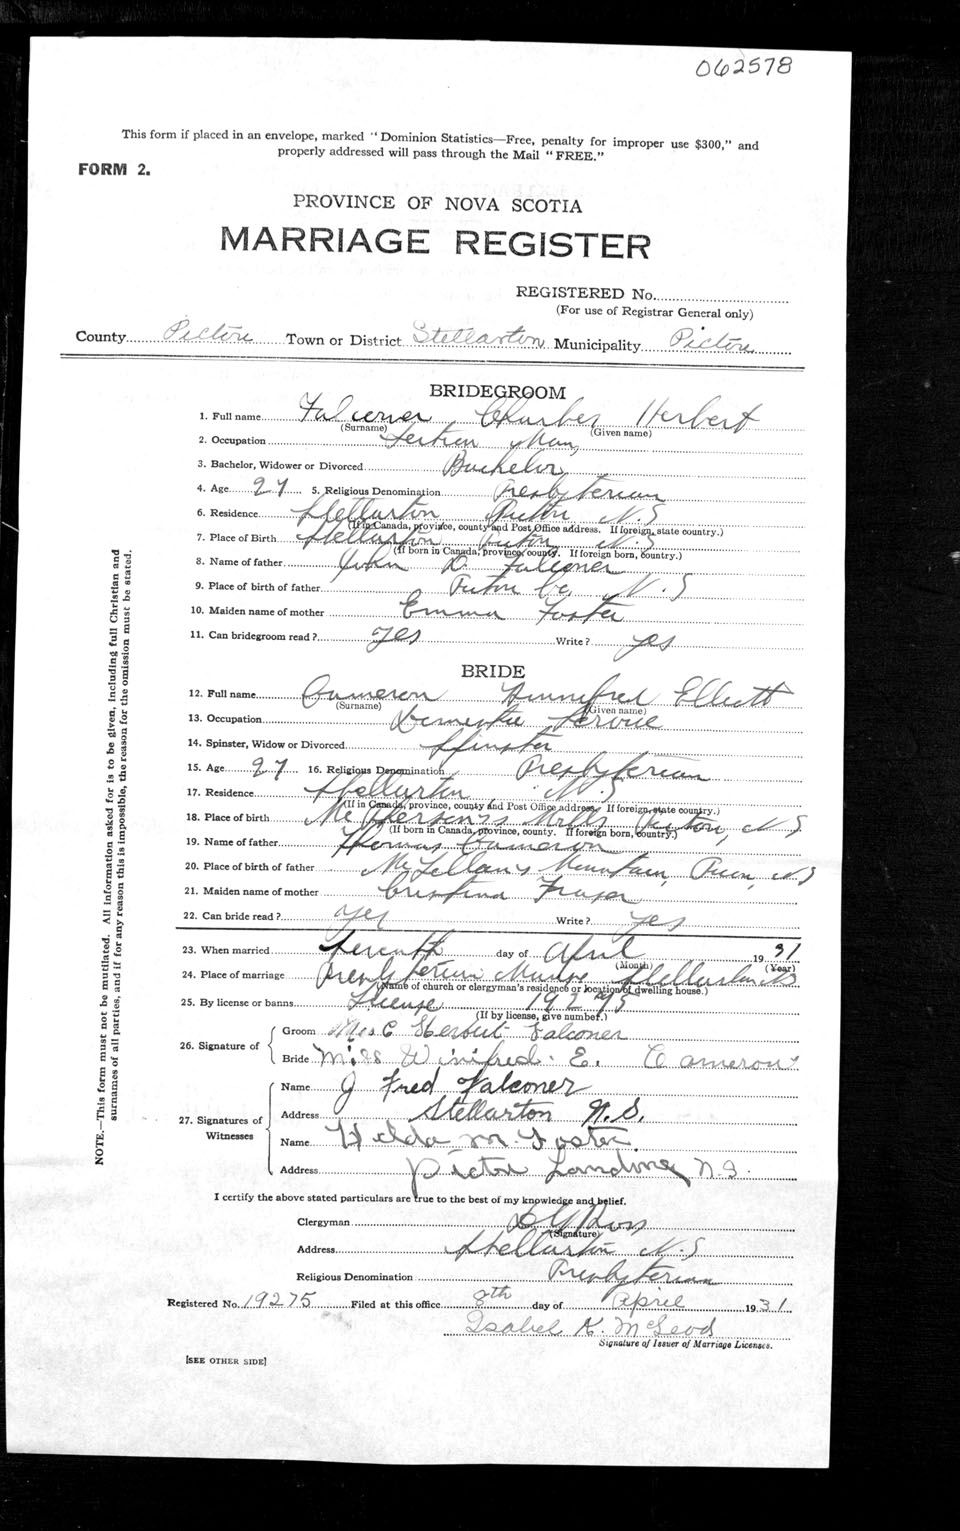 062578
This form if placed in an envelope, marked "Dominion Statistics—Free, penalty for improper use $300," and
properly addressed will pass through the Mail "FREE."
FORM 2.
PROVINCE OF NOVA SCOTIA
MARRIAGE REGISTER
REGISTERED No.
(For use of Registrar General only)
County Pictou Town or District Stellarton Municipality Pictou
BRIDEGROOM
1. Full name Falconer Charles Herbert
(Surname) (Given name)
2. Occupation Section Man
3. Bachelor, Widower or Divorced Bachelor
4. Age 27 5. Religious Denomination Presbyterian
6. Residence Stellarton Pictou N.S
(If in Canada, province, county and Post Office address. If foreign, state country.)
7. Place of Birth Stellarton Pictou N.S
(If born in Canada, province, county. If foreign born, country.)
8. Name of father John D Falconer
9. Place of birth of father Pictou Co. N.S
10. Maiden name of mother Emma Foster
11. Can bridegroom read? yes Write? yes
BRIDE
12. Full name Cameron Winnifred Elliott
(Surname) (Given name)
13. Occupation Domestic Service
14. Spinster, Widow or Divorced Spinster
15. Age 27 16. Religious Denomination Presbyterian
17. Residence Stellarton N.S
(If in Canada, province, county and Post Office address. If foreign, state country.)
18. Place of birth McPherson's Mills Pictou, N.S
(If born in Canada, province, county. If foreign born, country.)
19. Name of father Thomas Cameron
20. Place of birth of father McLellan's Mountain, N.S
21. Maiden name of mother Cristina Fraser
22. Can bride read? yes Write? yes
23. When married Seventh day of April 1931
(Month) (Year)
24. Place of marriage Presbyterian Manse Stellarton NS
(Name of church or clergyman's residence or location of dwelling house.)
25. By license or banns License 19275
(If by license, give number.)
26. Signature of
Groom C Herbert Falconer
Bride Miss Winifred. E. Cameron
27. Signatures of Witnesses
Name J Fred Falconer
Address Stellarton N.S.
Name Hilda M. Foster
Address Pictou Landing N.S.
I certify the above stated particulars are true to the best of my knowledge and belief.
Clergyman Ross
(Signature)
Address Stellarton N.S
Religious Denomination Presbyterian
Registered No. 19275 Filed at this office 8th day of April 1931
Isabel K. McLeod
Signature of Issuer of Marriage Licenses.
[SEE OTHER SIDE]
NOTE.—This form must not be mutilated. All information asked for is to be given, including full Christian and
surnames of all parties, and if for any reason this is impossible, the reason for the omission must be stated.